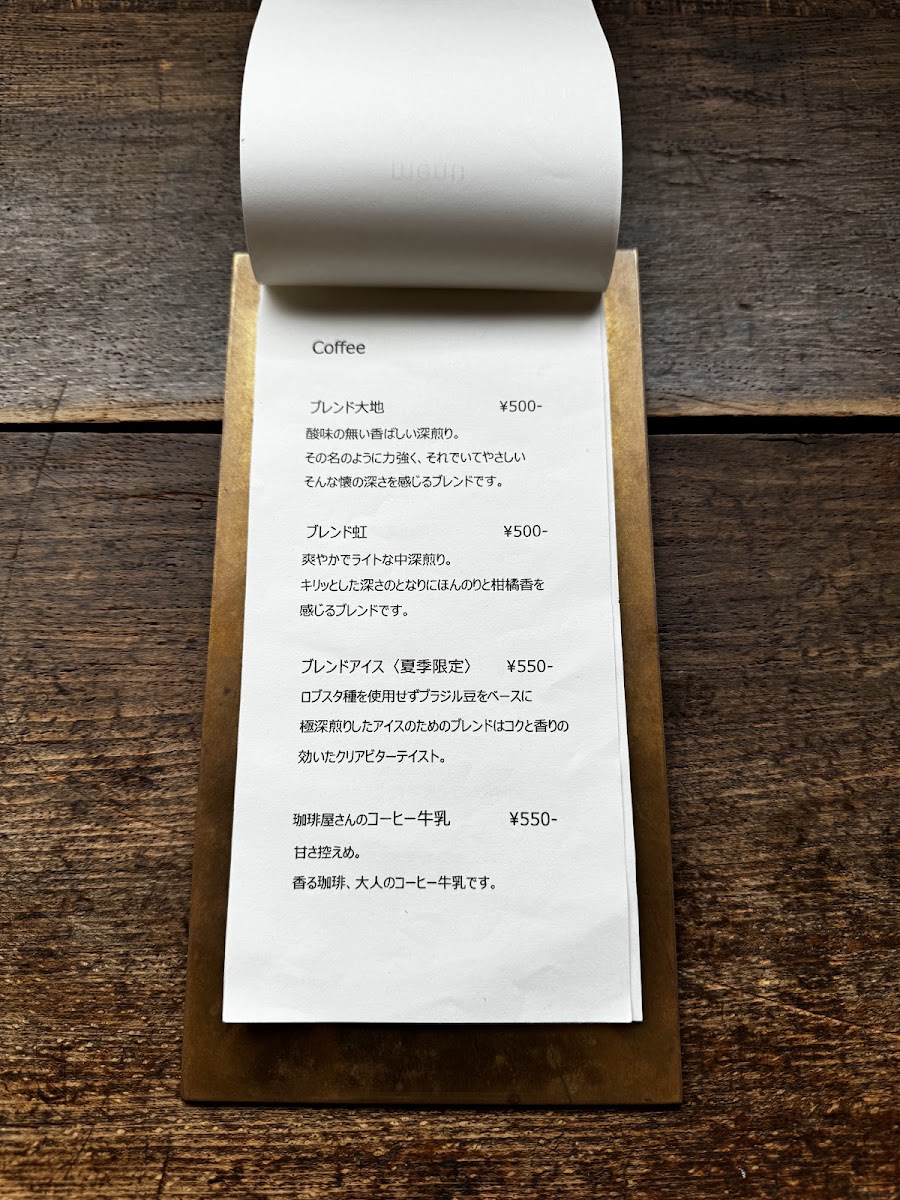 Coffee
ブレンド大地 ¥500-
酸味の無い香ばしい深煎り。
その名のように力強く、それでいてやさしい
そんな懐の深さを感じるブレンドです。
ブレンド虹 ¥500-
爽やかでライトな中深煎り。
キリッとした深さのとなりにほんのりと柑橘香を
感じるブレンドです。
ブレンドアイス〈夏季限定〉 ¥550-
ロブスタ種を使用せずブラジル豆をベースに
極深煎りしたアイスのためのブレンドはコクと香りの
効いたクリアビターテイスト。
珈琲屋さんのコーヒー牛乳 ¥550-
甘さ控えめ。
香る珈琲、大人のコーヒー牛乳です。